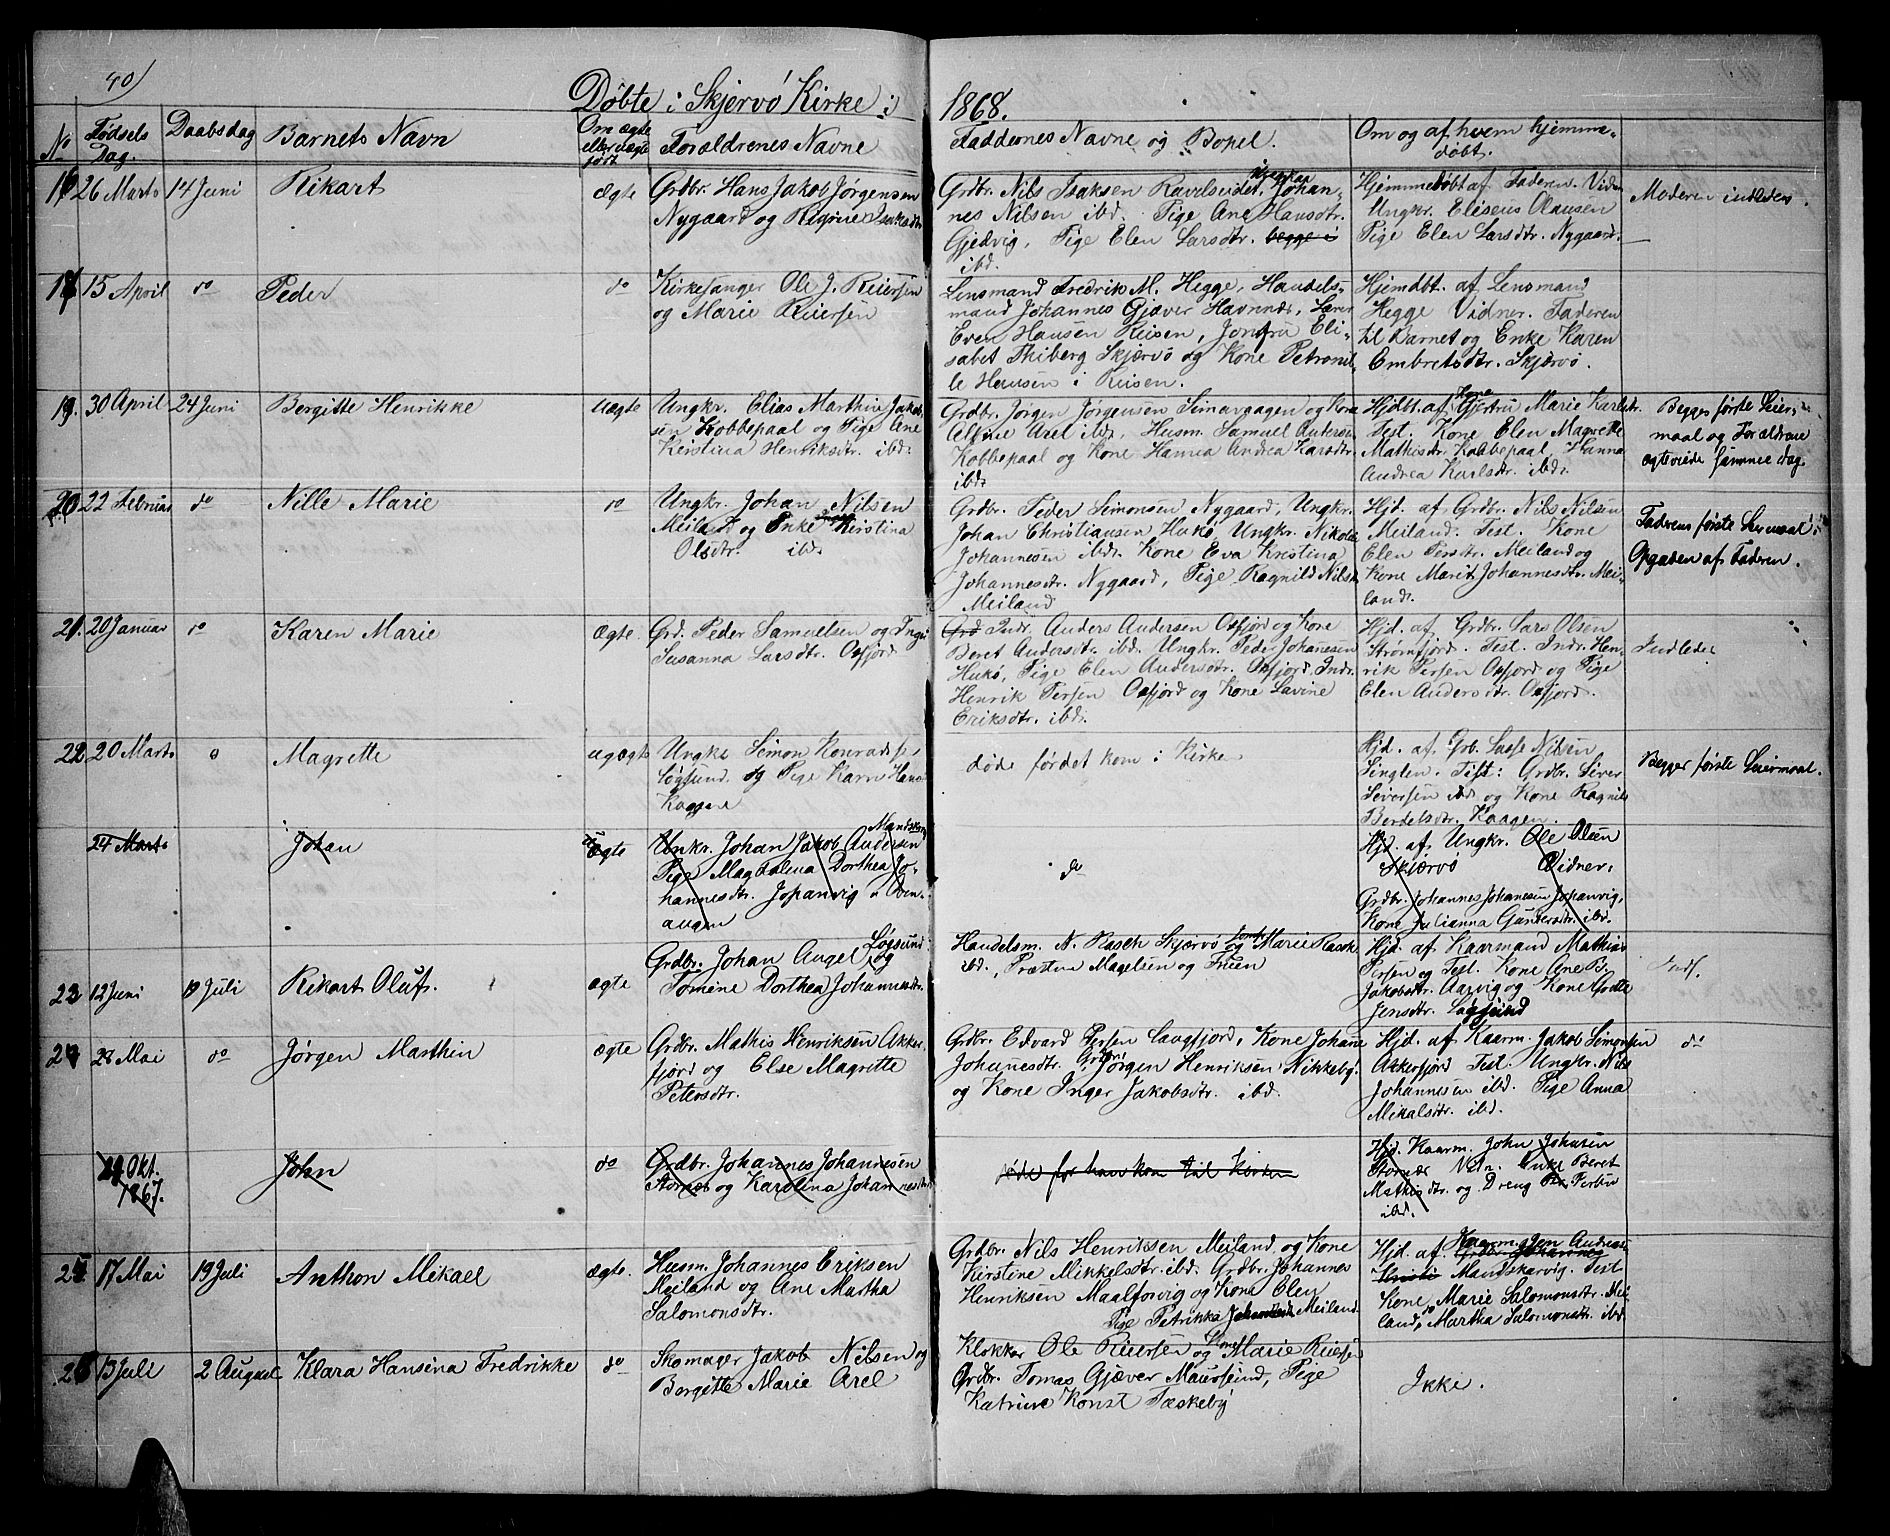 40)
Døbte i Skjervö Kirke i 1868.
No
Fødsels Dag.
Daabsdag
Barnets Navn
Om ægte eller uægte født
Forældrenes Navne
Faddernes Navne og Bopel.
Om og af hvem hjemme-
døbt.
26 Marts
14 Juni
Rikart
Ægte
Grdbr. Hans Jakob Jørgensen
Nygaard og
Grdbr. Nils Isaksen Ravelseidet, Johan-
nes Nilsen ibd. Pige Ane Hansdtr.
Gjedvig, Pige Elen Larsdtr. begge i
ibd.
Hjemmedøbt af Faderen. Vidn.
Ungkr. Eliseus Olausen
Pige Elen Larsdtr. Nygaard.
Moderen indledes.
15 April
do
Peder
do
Kirkesanger Ole J. Reiersen
og Marie Reiersen
Lensmand Fredrik M. Hegge, Handels-
mand Johannes Gjæver Havnnæs,
Even Hansen Reisen, Jomfru Eli-
sabet Thiberg Skjærvö og Kone Petronil-
le Hansen i Reisen.
Hjemdbt. af Lensmand
Hegge Vidner. Faderen
til Barnet og Enke Karen
Embretsdtr. Skjærvö.
19.
30 April
24 Juni
Bergitte Henrikke
Uægte
Ungkr. Elias Marthin Jakob-
sen Kobbepaal og Pige Ane
Kirstina Henriksdtr. ibd.
Grdbr. Jørgen Jørgensen Simavaagen og Kone
Axel ibd. Husm. Samuel
Kobbepaal og Kone Hanna Andrea Karlsdtr.
ibd.
Hjdbt. af Kone Gjertru Marie Karlsdtr.
Test. Kone Elen Magrette
Mathisdtr. Kobbepaal, Hanna
Andrea Karlsdtr. ibd.
Begges første Leier-
maal og Forældrene
ægteviede samme Dag.
20
22 Februar
do
Nille Marie
do
Ungkr. Johan Nilsen
Meiland og Enke Kirstina
Olsdtr. ibd.
Grdbr. Peder Simonsen Nygaard, Ungkr.
Johan Christiansen Hukö, Ungkr. Nikolai
Johannesen ibd. Kone Eva Kristina
Johannesdtr. Nygaard, Pige Ragnild Nilsd.
Meiland
Hjd. af Grdbr. Nils Nilsen
Meiland. Test. Kone
Elen Persdtr. Meiland og
Kone Marit Johannesdtr. Mei-
land.
Faderens første Leiermaal.
Opgaven af Faderen.
21.
20 Januar
do
Karen Marie
Ægte.
Grd. Peder Samuelsen og Inger
Susanna Larsdtr. Oxfjord
Grd Indr. Anders Andersen Oxfjord og Kone
Beret Andersdtr. ibd. Ungkr. Peder Johanesen
Hukö, Pige Elen Andersdtr. Oxfjord, Indr.
Henrik Persen Oxfjord og Kone Lavine
Eriksdtr. ibd.
Hjd. af Grdbr. Lars Olsen
Strømfjord. Test. Indr. Hen-
rik Persen Oxfjord og Pige
Elen Andersdtr. Oxfjord.
Indledes
22
20 Marts
Magrette
ugægte
Ungkr Simon Konrads
Løgsund og Pige Karn Hans
Kaagen
døde førdet kom i Kirke
Hjd. af Grb. Lasse Nilsen
Singlen. Test: Grdbr. Siver
Siversen ibd og Kone Ragnild
Berdelsdtr. Kaagen.
Begges første Leiermaal.
24 Marts
Johan
Uægte
Unkr. Johan Jakob Andersen
Pige Magdalena Dorthea Jo-
hannesdtr. Johanvig
do
Hjd. af Ungkr. Ole Olsen
Skjærvö Vidner.
Grdbr. Johannes Johanesen Johanvig,
Kone Julianna Gundersdtr. ibd.
23
12 Juni
19 Juli
Rikart Oluf.
ægte
Grdbr. Johan Angel Løgsund og
Tomine Dorthea Johannesdtr.
Handelsm. N. Rasch Skjærvö og Marie Rasch
ibd., Præsten Magelsen og Fruen
Hjd. af Kaarmand Mathias
Persen og Test. Kone Ane B.
Jakobsdtr. Aarvig og Kone
Jensdtr. Løgsund
Indl.
24
23 Mai
do
Jørgen Marthin
ægte
Grdbr. Mathis Henriksen Akker-
fjord og Else Magrette
Petersdtr.
Grdbr. Edvard Persen Laugfjord, Kone Johane
Johanesdtr. Grdbr. Jørgen Henriksen Nikkeby
og Kone Inger Jakobsdtr. ibd.
Hjd. af Kaarm. Jakob Simonsen
Akkerfjord Test. Ungkr. Nils
Johannesen ibd. Pige Anna
Mikalsdtr. ibd.
do
Okt.
1867.
John
do
Grdbr. Johannes Johannesen
og Karolina Johannesdtr.
døde før han kom til Kirken
Hjd. Kaarm. John Johnsen
Enke Beret
Mathisdtr. og Dreng
ibd.
17 Mai
19 Juli
Anthon Mikael
ægte.
Husm. Johannes Eriksen
Meiland og Ane Martha
Salomonsdtr.
Grdbr. Nils Henriksen Meiland og Kone
Kirstine Mikkelsdtr. ibd. Grdbr. Johannes
Henriksen og Kone Elen
Pige Petrikka Meiland.
Hjd. af Kaarm.
Mandskarvig. Test
Kone Marie Salomonsdtr. Mei-
land, Martha Salomonsdtr. ibd.
13 Juli
2 August
Klara Hansina Fredrikke
do
Skomager Jakob Nilsen og
Bergitte Marie Axel
Klokker Ole Reiersen og Kone Marie Reiersen
Grdbr. Tomas Gjæver Maursund, Pige
Katrine Konst Taskeby
Ikke.